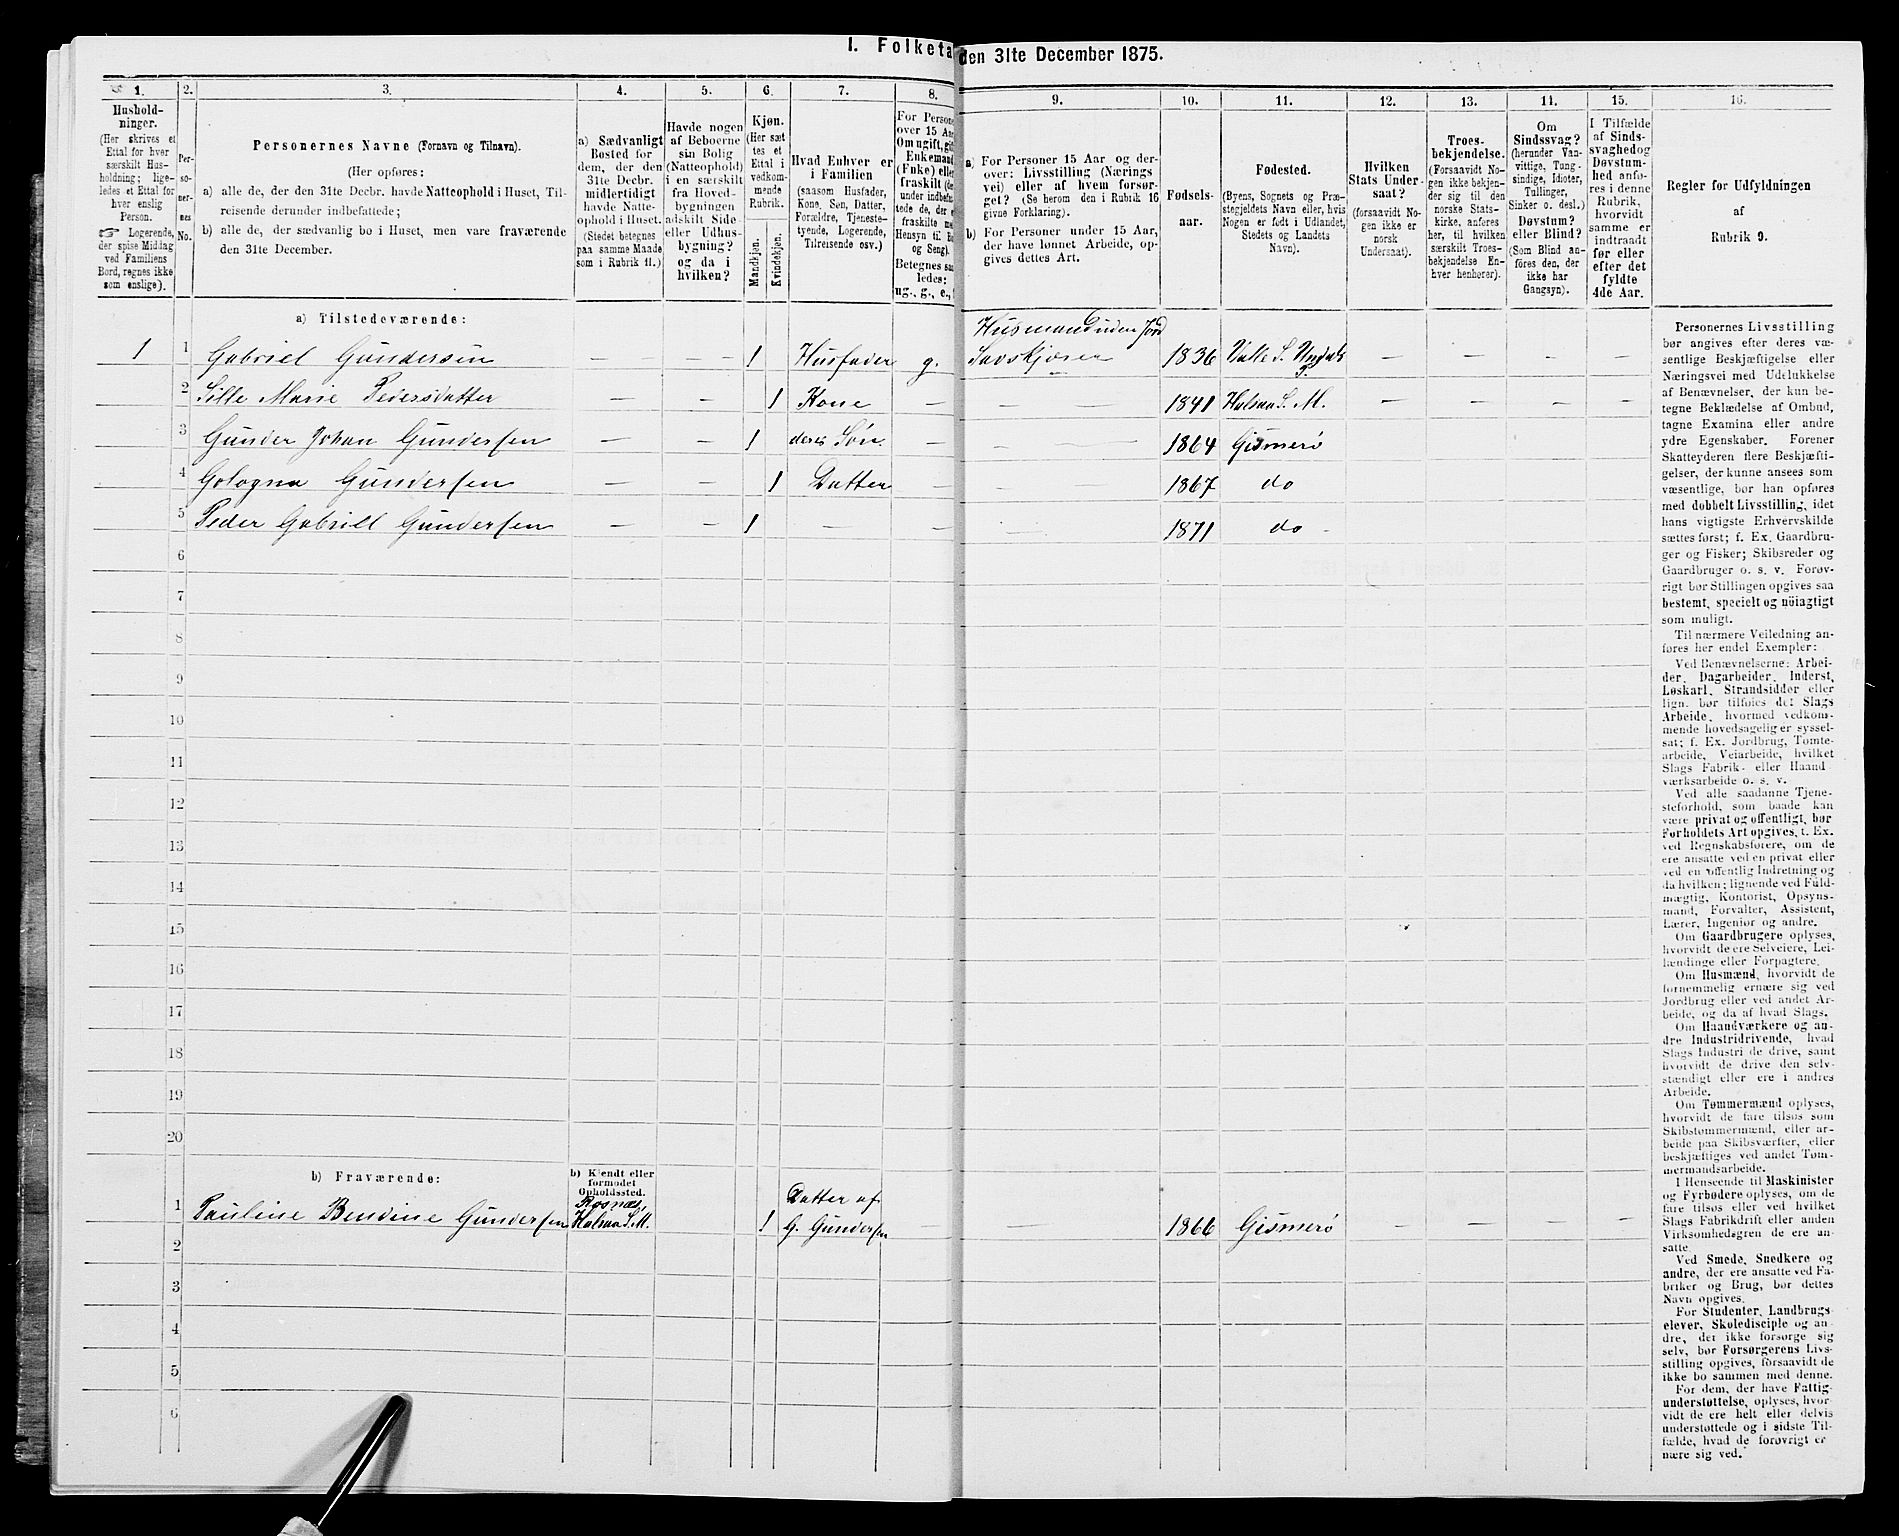 I. Folketa den 31te December 1875.
1. 2. 3. 4. 5. 6. 7. 8. 9. 10. 11. 12. 13. 14. 15. 16.
Hushold-
ninger.
(Her skrives et
Ettal for hver
særskilt Hus-
holdning; lige-
ledes et Ettal for
hver enslig
Person.
☞ Logerende,
der spise Middag
ved Familiens
Bord, regnes ikke
som enslige).
Per-
so-
ner-
nes
No.
Personernes Navne (Fornavn og Tilnavn).
(Her opføres:
a) alle de, der den 31te Decbr. havde Natteophold i Huset, Til-
reisende derunder indbefattede;
b) alle de, der sædvanlig bo i Huset, men vare fraværende
den 31te December.
a) Sædvanligt
Bosted for
dem, der den
31te Decbr.
midlertidigt
havde Natte-
ophold i Huset.
(Stedet betegnes
paa samme Maade
som i Rubrik 11.)
Havde nogen
af Beboerne
sin Bolig
(Natteophold)
i en særskilt
fra Hoved-
bygningen
adskilt Side-
eller Udhus-
bygning?
og da i
hvilken?
Kjøn.
(Her sæt
tes et
Ettal i
vedkom-
mende
Rubrik.
Mandkjøn.
Kvindekjøn.
Hvad Enhver er
i Familien
(saasom Husfader,
Kone, Søn, Datter,
Forældre, Tjeneste-
tyende, Logerende,
Tilreisende osv.)
For Persone
over 15 Aar
Om ugift, gif
Enkemand
(Enke) eller
fraskilt (de
under indbefat
tede de, der e
fraskilte me
Hensyn til Bo
og Seng).
Betegnes saa
ledes:
ug., g., e.,
a) For Personer 15 Aar og der-
over: Livsstilling (Nærings
vei) eller af hvem forsør-
get? (Se herom den i Rubrik 16
givne Forklaring).
b) For Personer under 15 Aar,
der have lønnet Arbeide, op-
gives dettes Art.
Fødsels-
aar.
Fødested.
(Byens, Sognets og Præ-
stegjeldets Navn eller, hvis
Nogen er født i Udlandet,
Stedets og Landets
Navn).
Hvilken
Stats Under-
saat?
(forsaavidt No-
gen ikke er
norsk
Undersaat).
Troes-
bekjendelse.
(Forsaavidt No-
gen ikke bekjen-
der sig til den
norske Stats-
kirke, anføres
her, til hvilken
særskilt Troes-
bekjendelse En-
hver henhører).
Om
Sindssvag?
(herunder Van-
vittige, Tung-
sindige, Idioter,
Tullinger,
Sinker o. desl.)
Døvstum?
eller Blind?
(Som Blind an-
føres den, der
ikke har
Gangsyn).
I Tilfælde
af Sinds-
svaghed og
Døvstum-
hed anfø-
res i denne
Rubrik,
hvorvidt
samme er
indtraadt
før eller
efter det
fyldte
4de Aar.
Regler for Udfyldningen
af
Rubrik 9.
a) Tilstedeværende:
Husmand uden Jord
1 1 Gabriel Gundersen — — 1 Husfader g. Savskjærer 1836 Valle S. Undals P. — — — —
2 Sille Marie Pedersdatter — — 1 Kone — — 1841 Halsaa S. M. — — — —
3 Gunder Johan Gundersen — — 1 deres Søn — — 1864 Gismerø
4 Gologna Gundersen — — 1 Datter — — 1867 do
5 Peder Gabriel Gundersen — — 1 — — — 1871 do
6
7
8
9
10
11
12
13
14
15
16
17
18
19
20
b) Fraværende:
b) Kjendt eller
formodet
Opholdssted.
1 Pauline Bendine Gundersen Rosnæs, Halsaa S. M. 1 Datter af G. Gundersen — 1866 Gismerø — — — —
2
3
4
5
6
Personernes Livsstilling
bør angives efter deres væ-
sentlige Beskjæftigelse eller
Næringsvei med Udelukkelse
af Benævnelser, der kun be-
tegne Beklædelse af Ombud,
tagne Examina eller andre
ydre Egenskaber. Forener
Skatteyderen flere Beskjæfti-
gelser, der kunne ansees som
væsentlige, bør han opføres
med dobbelt Livsstilling, idet
hans vigtigste Erhvervskilde
sættes først; f. Ex. Gaardbru-
ger og Fisker; Skibsreder og
Gaardbruger o. s. v. Forøv-
rigt bør Stillingen opgives saa
bestemt, specielt og nöiagtigt
som muligt.
Til nærmere Veiledning an-
føres her endel Exempler:
Ved Benævnelserne: Arbei-
der, Dagarbeider, Inderst,
Løskarl, Strandsidder eller
lign. bør tilføies det Slags
Arbeide, hvormed vedkom-
mende hovedsagelig er syssel-
sat; f. Ex. Jordbrug, Tomte-
arbeide, Veiarbeide, hvilket
Slags Fabrik- eller Haand
værksarbeide o. s. v.
Ved alle saadanne Tjene-
steforhold, som baade kan
være privat og offentligt, bør
Forholdets Art opgives, t. Ex.
ved Regnskabsførere, om de
ere ansatte ved en privat eller
ved en offentlig Indretning og
da hvilken; lignende ved Fuld-
mægtig, Kontorist, Opsyns-
mand, Forvalter, Assistent,
Lærer, Ingeniør og andre.
Om Gaardbrugere oplyses,
hvorvidt de ere Selveiere, Lei-
lændinge eller Forpagtere.
Om Husmænd, hvorvidt de
fornemmelig ernære sig ved
Jordbrug eller ved andet Ar-
beide, og da af hvad Slags.
Om Haandværkere og an-
dre Industridrivende, hvad
Slags Industri de drive, samt
hvorvidt de drive den selv-
stændigt eller ere i andres
Arbeide.
Om Tømmermænd oplyses,
hvorvidt de fare tilsøs som
Skibstømmermænd, eller ar-
beide paa Skibsværfter, eller
beskjæftiges ved andet Tøm-
mermandsarbeide.
I Henseende til Maskinister
og Fyrbødere oplyses, om de
fare tilsøs eller ved hvilket
Slags Fabrikdrift eller anden
Virksomhedsgren de ere an-
satte.
Ved Smede, Snedkere og
andre, der ere ansatte ved Fa-
briker og Brug, bør dettes
Navn opgives.
For Studenter, Landbrugs-
elever, Skoledisciple og an-
dre, der ikke forsørge sig
selv, bør Forsørgerens Livs-
stilling opgives, forsaavidt de
ikke bo sammen med denne.
For dem, der have Fattig-
understøttelse, oplyses, hvor-
vidt de ere helt eller delvis
understøttede og i sidste Til-
fælde, hvad de forøvrigt er
nære sig ved.